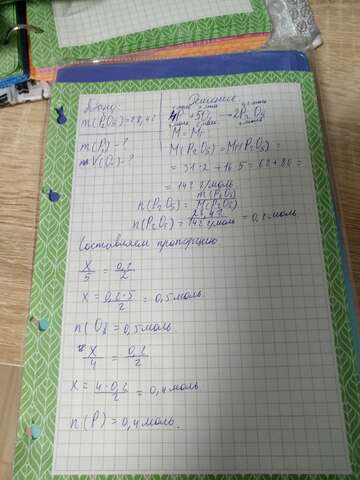 Дано:
m(P₂O₅)=28,4г
m(P)=?
V(O₂)=?
Решение
4P + 5O₂ → 2P₂O₅
M=Mr
M(P₂O₅)=Mr(P₂O₅)=
= 31·2 + 16·5 = 62+80=
= 142 г/моль
n(P₂O₅)= m(P₂O₅)/M(P₂O₅)
n(P₂O₅)= 28,4г/142 г/моль = 0,2 моль
Составляем пропорцию
x/5 = 0,2/2
x = 0,2·5/2 = 0,5 моль.
n(O₂ = 0,5 моль
x/4 = 0,2/2
x = 4·0,2/2 = 0,4 моль
n(P) = 0,4 моль.